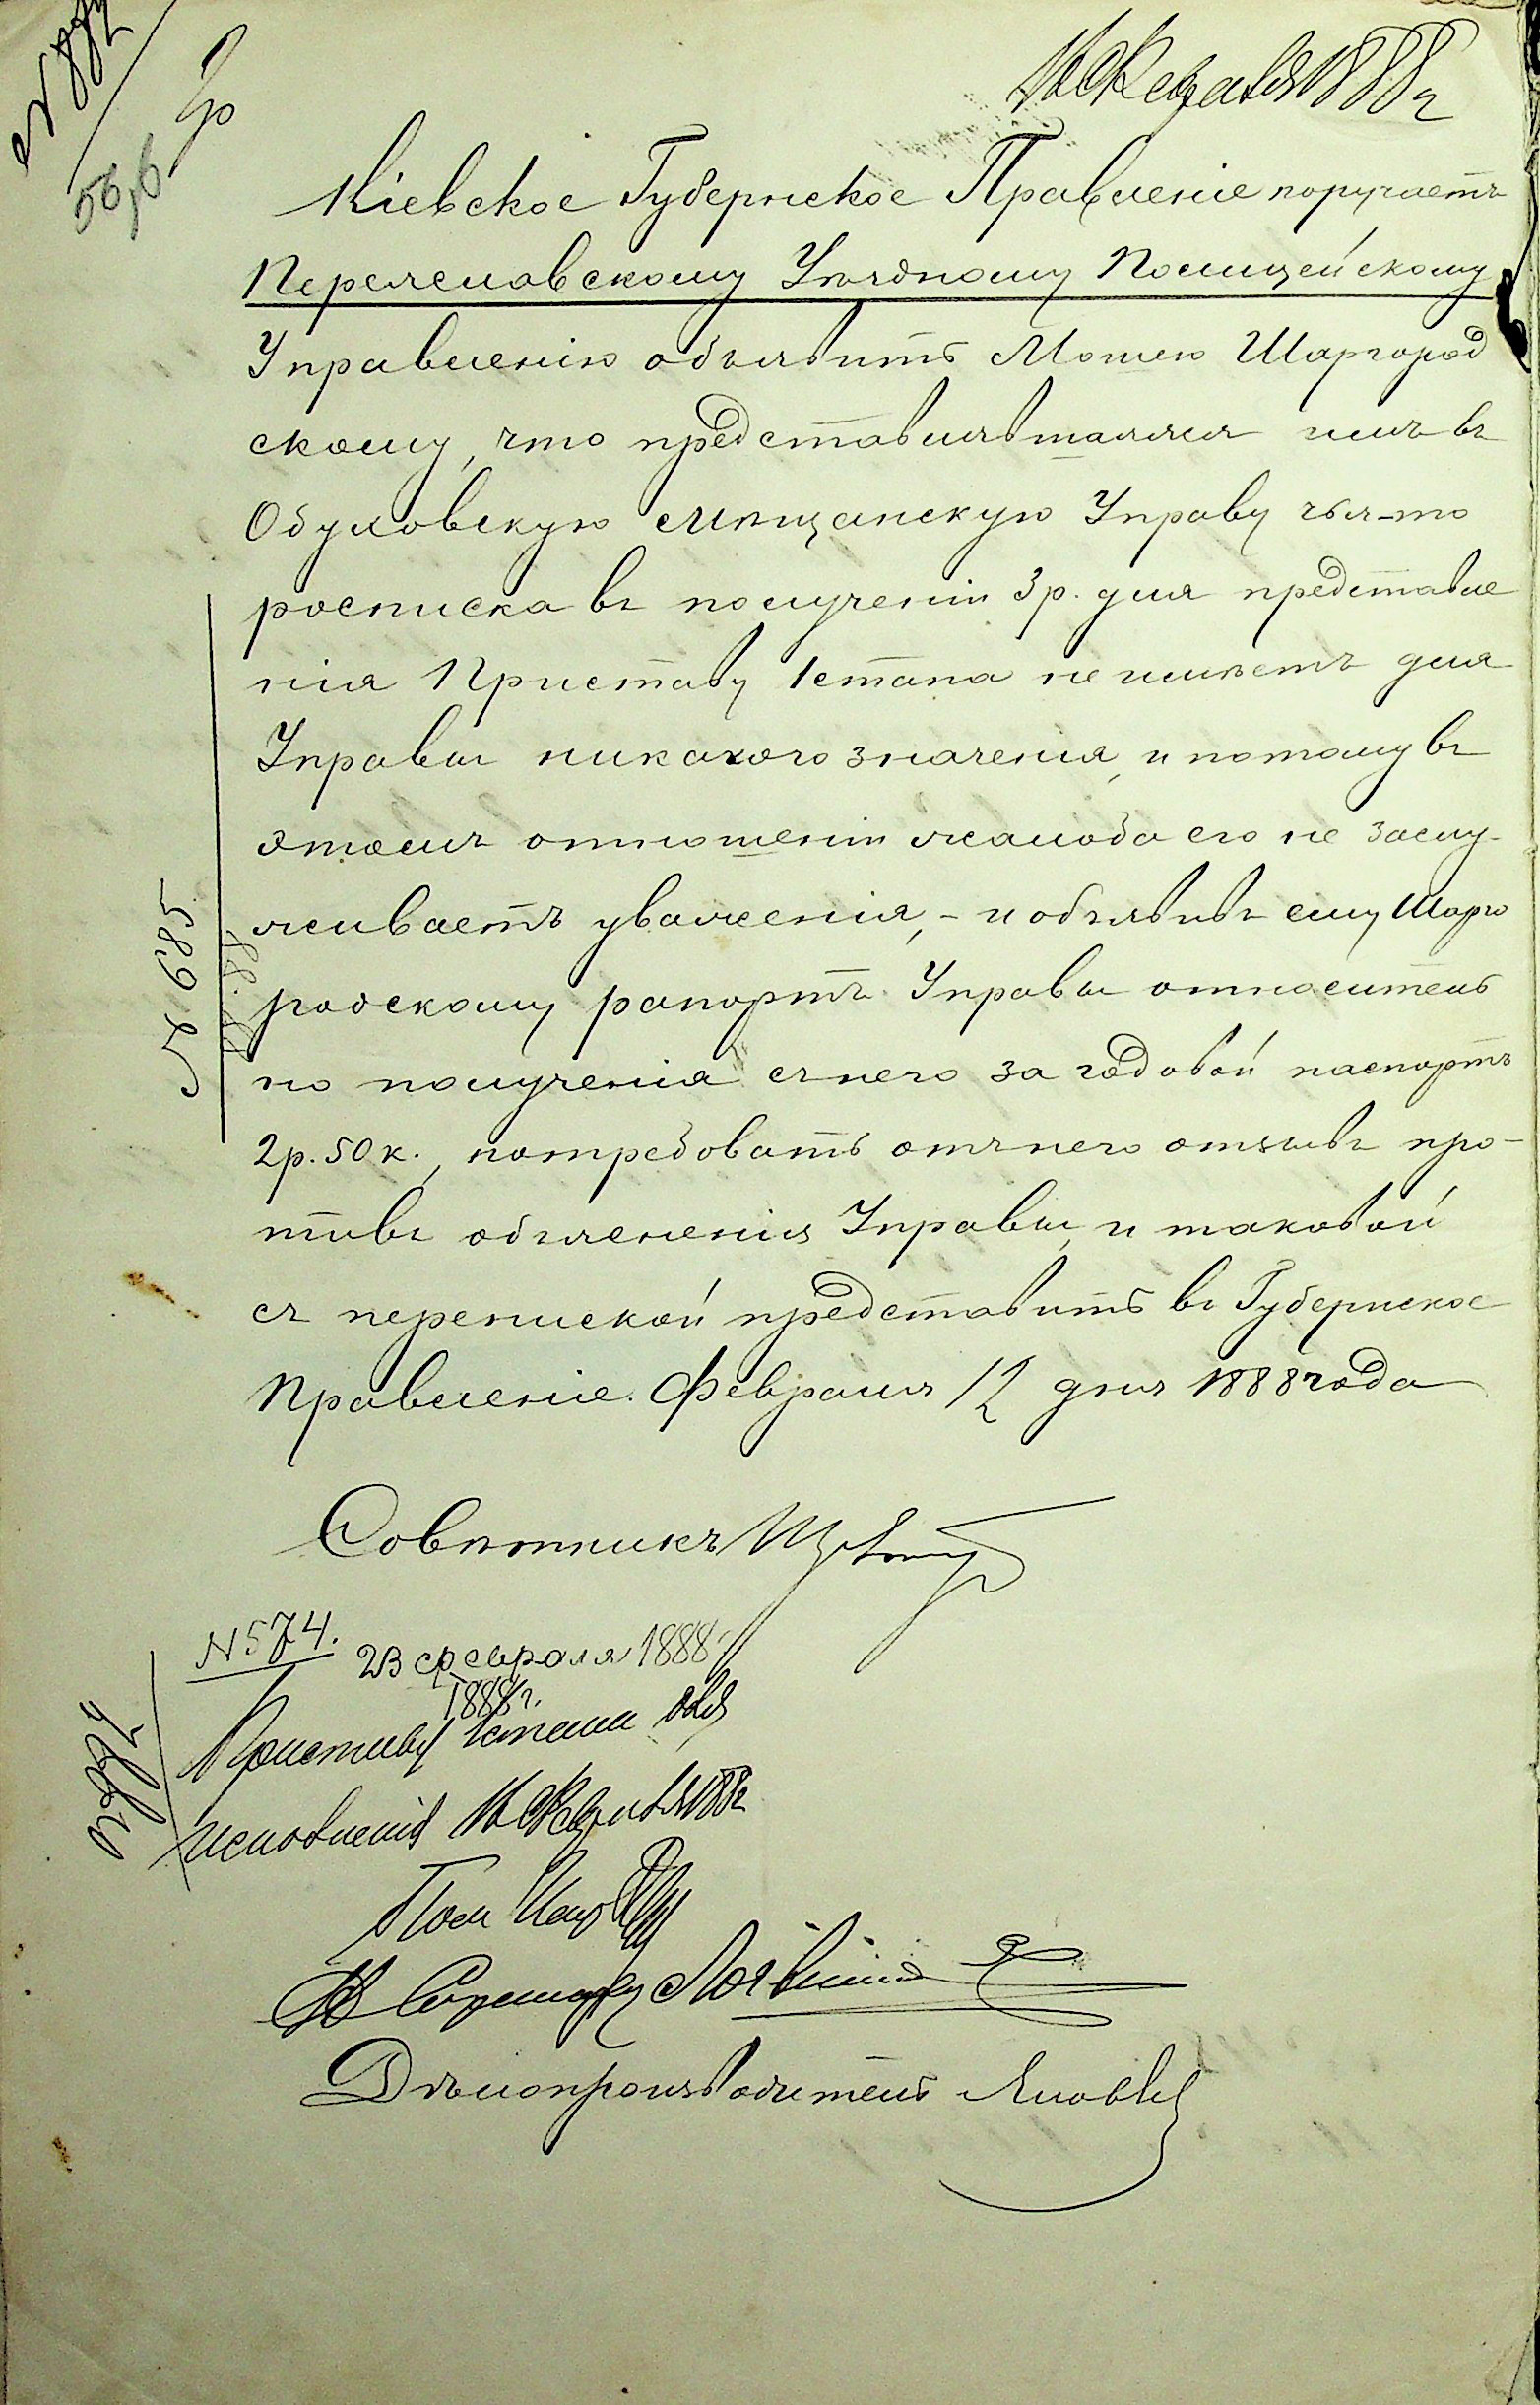 16 Февраля 1888 г
Кіевское Губернское Правленіе поручаетъ
Переяславскому Уѣздному Полицейскому
Управленію объявить Мошею Шаргород
скому, что представлявшаяся имъ въ
Обуховскую Мѣщанскую Управу чья-то
росписка въ полученіи 3 р. для представле
нія Приставу 1 стана не имѣетъ для
Управы никакого значенія, и потому въ
этомъ отношеніи жалоба его не заслу-
живаетъ уваженія, - и объявивъ ему Шарго
родскому рапортъ Управы относитель
но полученія съ него за годовой паспортъ
2 р. 50 к., потребовать отъ него отзывъ про-
тивъ объясненія Управы, и таковой
съ перепиской представить въ Губернское
Правленіе. Февраля 12 дня 1888 года
№ 685
Совѣтникъ
№ 574.
23 февраля 1888
1888 г.
Приставу 1 стана для
исполненія 16 Февраля 1888
Пом Испр
Секретарь
Дѣлопроизводитель